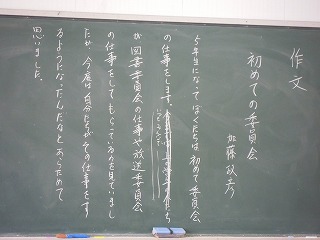 作文
初めての委員会
加藤政彦
5年生になってぼくたちは初めて委員会
の仕事をします。たち
が図書委員会の仕事や放送委員会
の仕事をしてもらっているのを見ていまし
たが、今度は自分たちがその仕事をす
るようになったんだなとあらためて
思いました。